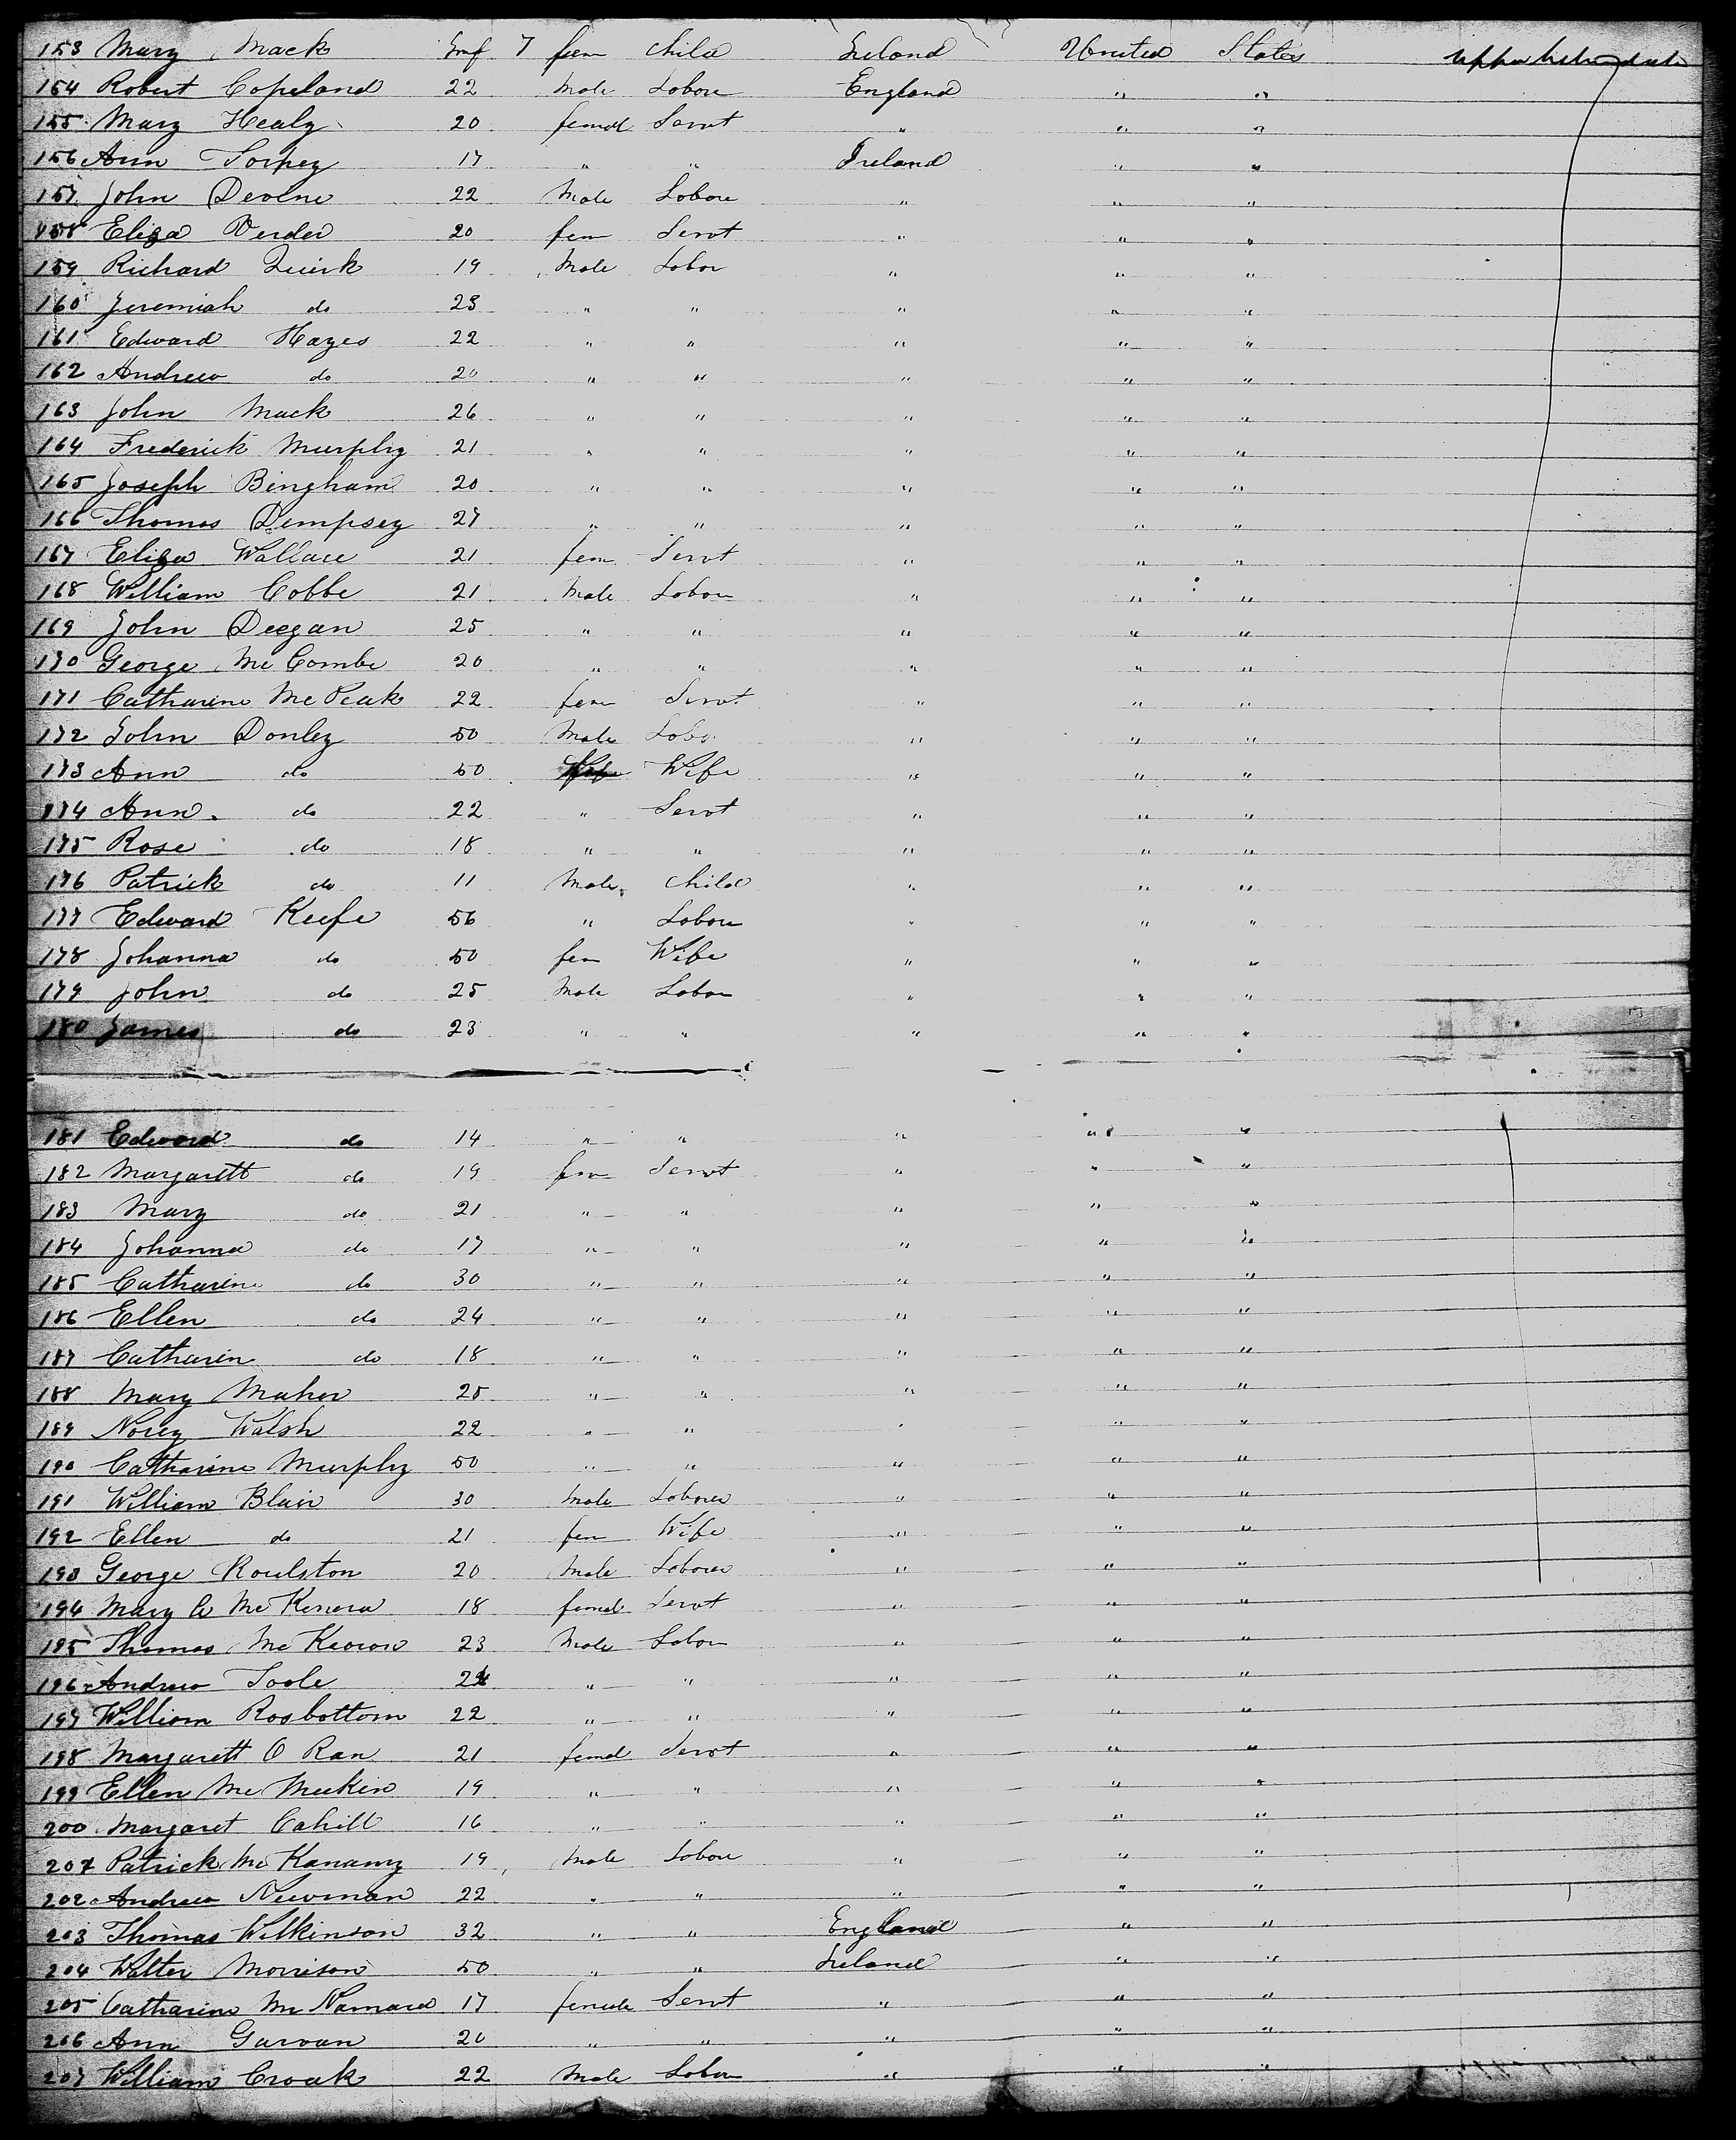 153 Mary Mack Inf 7 fem child Ireland United States
154 Robert Copeland 22 Male Labou England " "
155 Mary Healy 20 femal Servt " " "
156 Ann Torpey 17 " " Ireland " "
157 John Devine 22 Male Labou " " "
158 Eliza Verder 20 fem Servt " " "
159 Richard Quirk 19 Male Labor " " "
160 Jeremiah do 23 " " " " "
161 Edward Hayes 22 " " " " "
162 Andrew do 20 " " " " "
163 John Mack 26 " " " " "
164 Frederick Murphy 21 " " " " "
165 Joseph Bingham 20 " " " " "
166 Thomas Dempsey 27 " " " " "
167 Eliza Wallace 21 fem Servt " " "
168 William Cobbe 21 Male Labou " " "
169 John Deegan 25 " " " " "
170 George McCombe 20 " " " " "
171 Catharine McPeak 22 fem Servt " " "
172 John Donley 50 Male Labo " " "
173 Ann do 50 Wife " " "
174 Ann do 22 " Servt " " "
175 Rose do 18 " " " " "
176 Patrick do 11 Male child " " "
177 Edward Keefe 56 " Labou " " "
178 Johanna do 50 fem Wife " " "
179 John do 25 Male Labou " " "
180 James do 23 " " " " "
181 Edward do 14 " " " " "
182 Margarett do 19 fem Servt " " "
183 Mary do 21 " " " " "
184 Johanna do 17 " " " " "
185 Catharine do 30 " " " " "
186 Ellen do 24 " " " " "
187 Catharin do 18 " " " " "
188 Mary Maher 25 " " " " "
189 Norey Walsh 22 " " " " "
190 Catharine Murphy 50 " " " " "
191 William Blair 30 Male Laborer " " "
192 Ellen do 21 fem Wife " " "
193 George Roulston 20 Male Laborer " " "
194 Mary A McKenna 18 femal Servt " " "
195 Thomas McKeown 23 Male Labou " " "
196 Andrew Toole 24 " " " " "
197 William Rosbottom 22 " " " " "
198 Margarett O Ran 21 femal Servt " " "
199 Ellen McMeekin 19 " " " " "
200 Margaret Cahill 16 " " " " "
201 Patrick McKanany 19 Male Labou " " "
202 Andrew Newman 22 " " " " "
203 Thomas Wilkinson 32 " " England " "
204 Walter Morrison 50 " " Ireland " "
205 Catharine McNamara 17 female Servt " " "
206 Ann Garvan 20 " " " " "
207 William Croak 22 Male Labou " " "